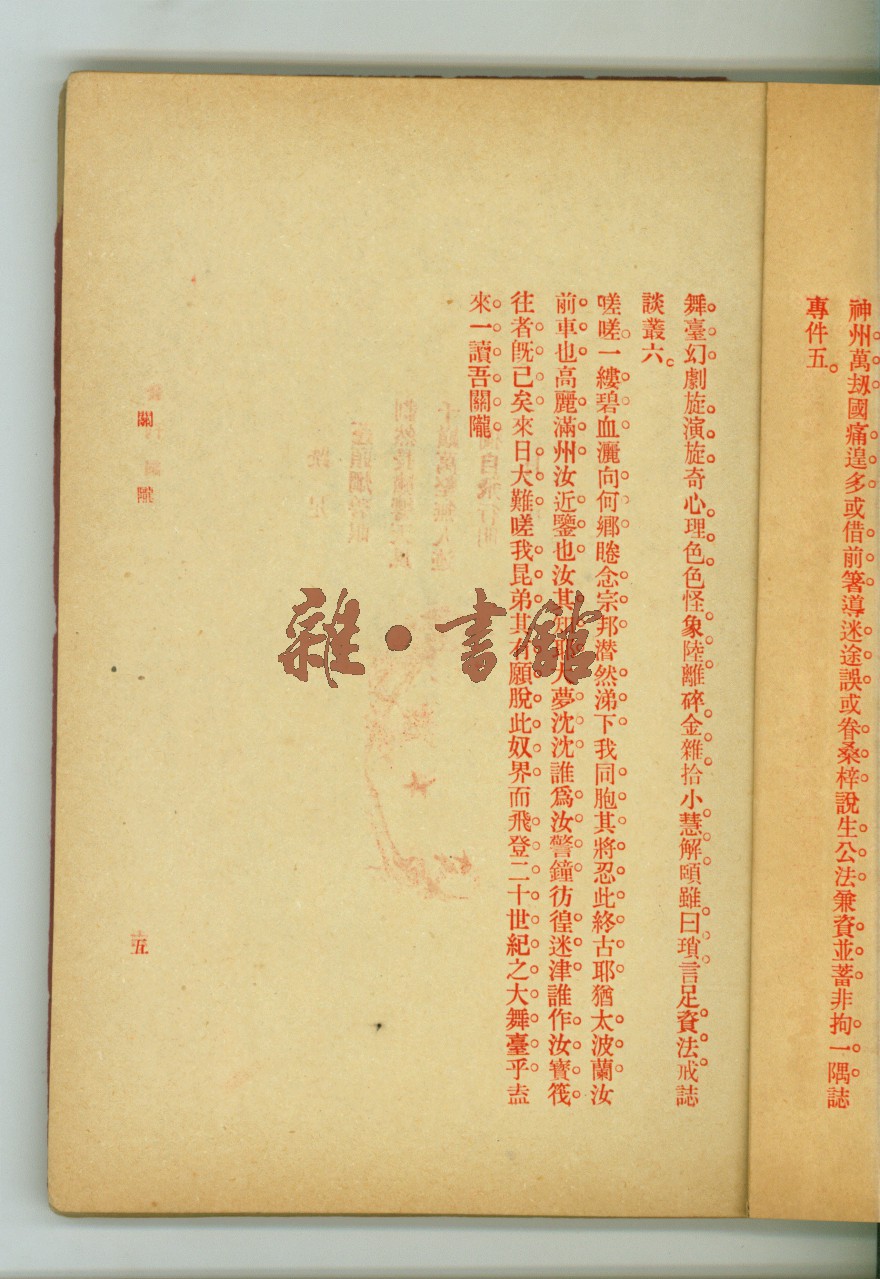 神州萬刼國痛遑多或借前箸導迷途誤或眷桑梓說生公法兼資並蓄非拘一隅誌
專件五。
舞臺幻劇旋演旋奇心理色色怪象陸離碎金雜拾小慧解頤雖曰瑣言足資法戒誌
談叢六。
嗟嗟一縷碧血灑向何鄉睠念宗邦潸然涕下我同胞其將忍此終古耶猶太波蘭汝
前車也高麗滿州汝近鑒也汝其 大夢沈沈誰爲汝警鐘彷徨迷津誰作汝寶筏
往者旣已矣來日大難嗟我昆弟其有願脫此奴界而飛登二十世紀之大舞臺乎盍
來一讀吾關隴
關隴
五
雜·書館